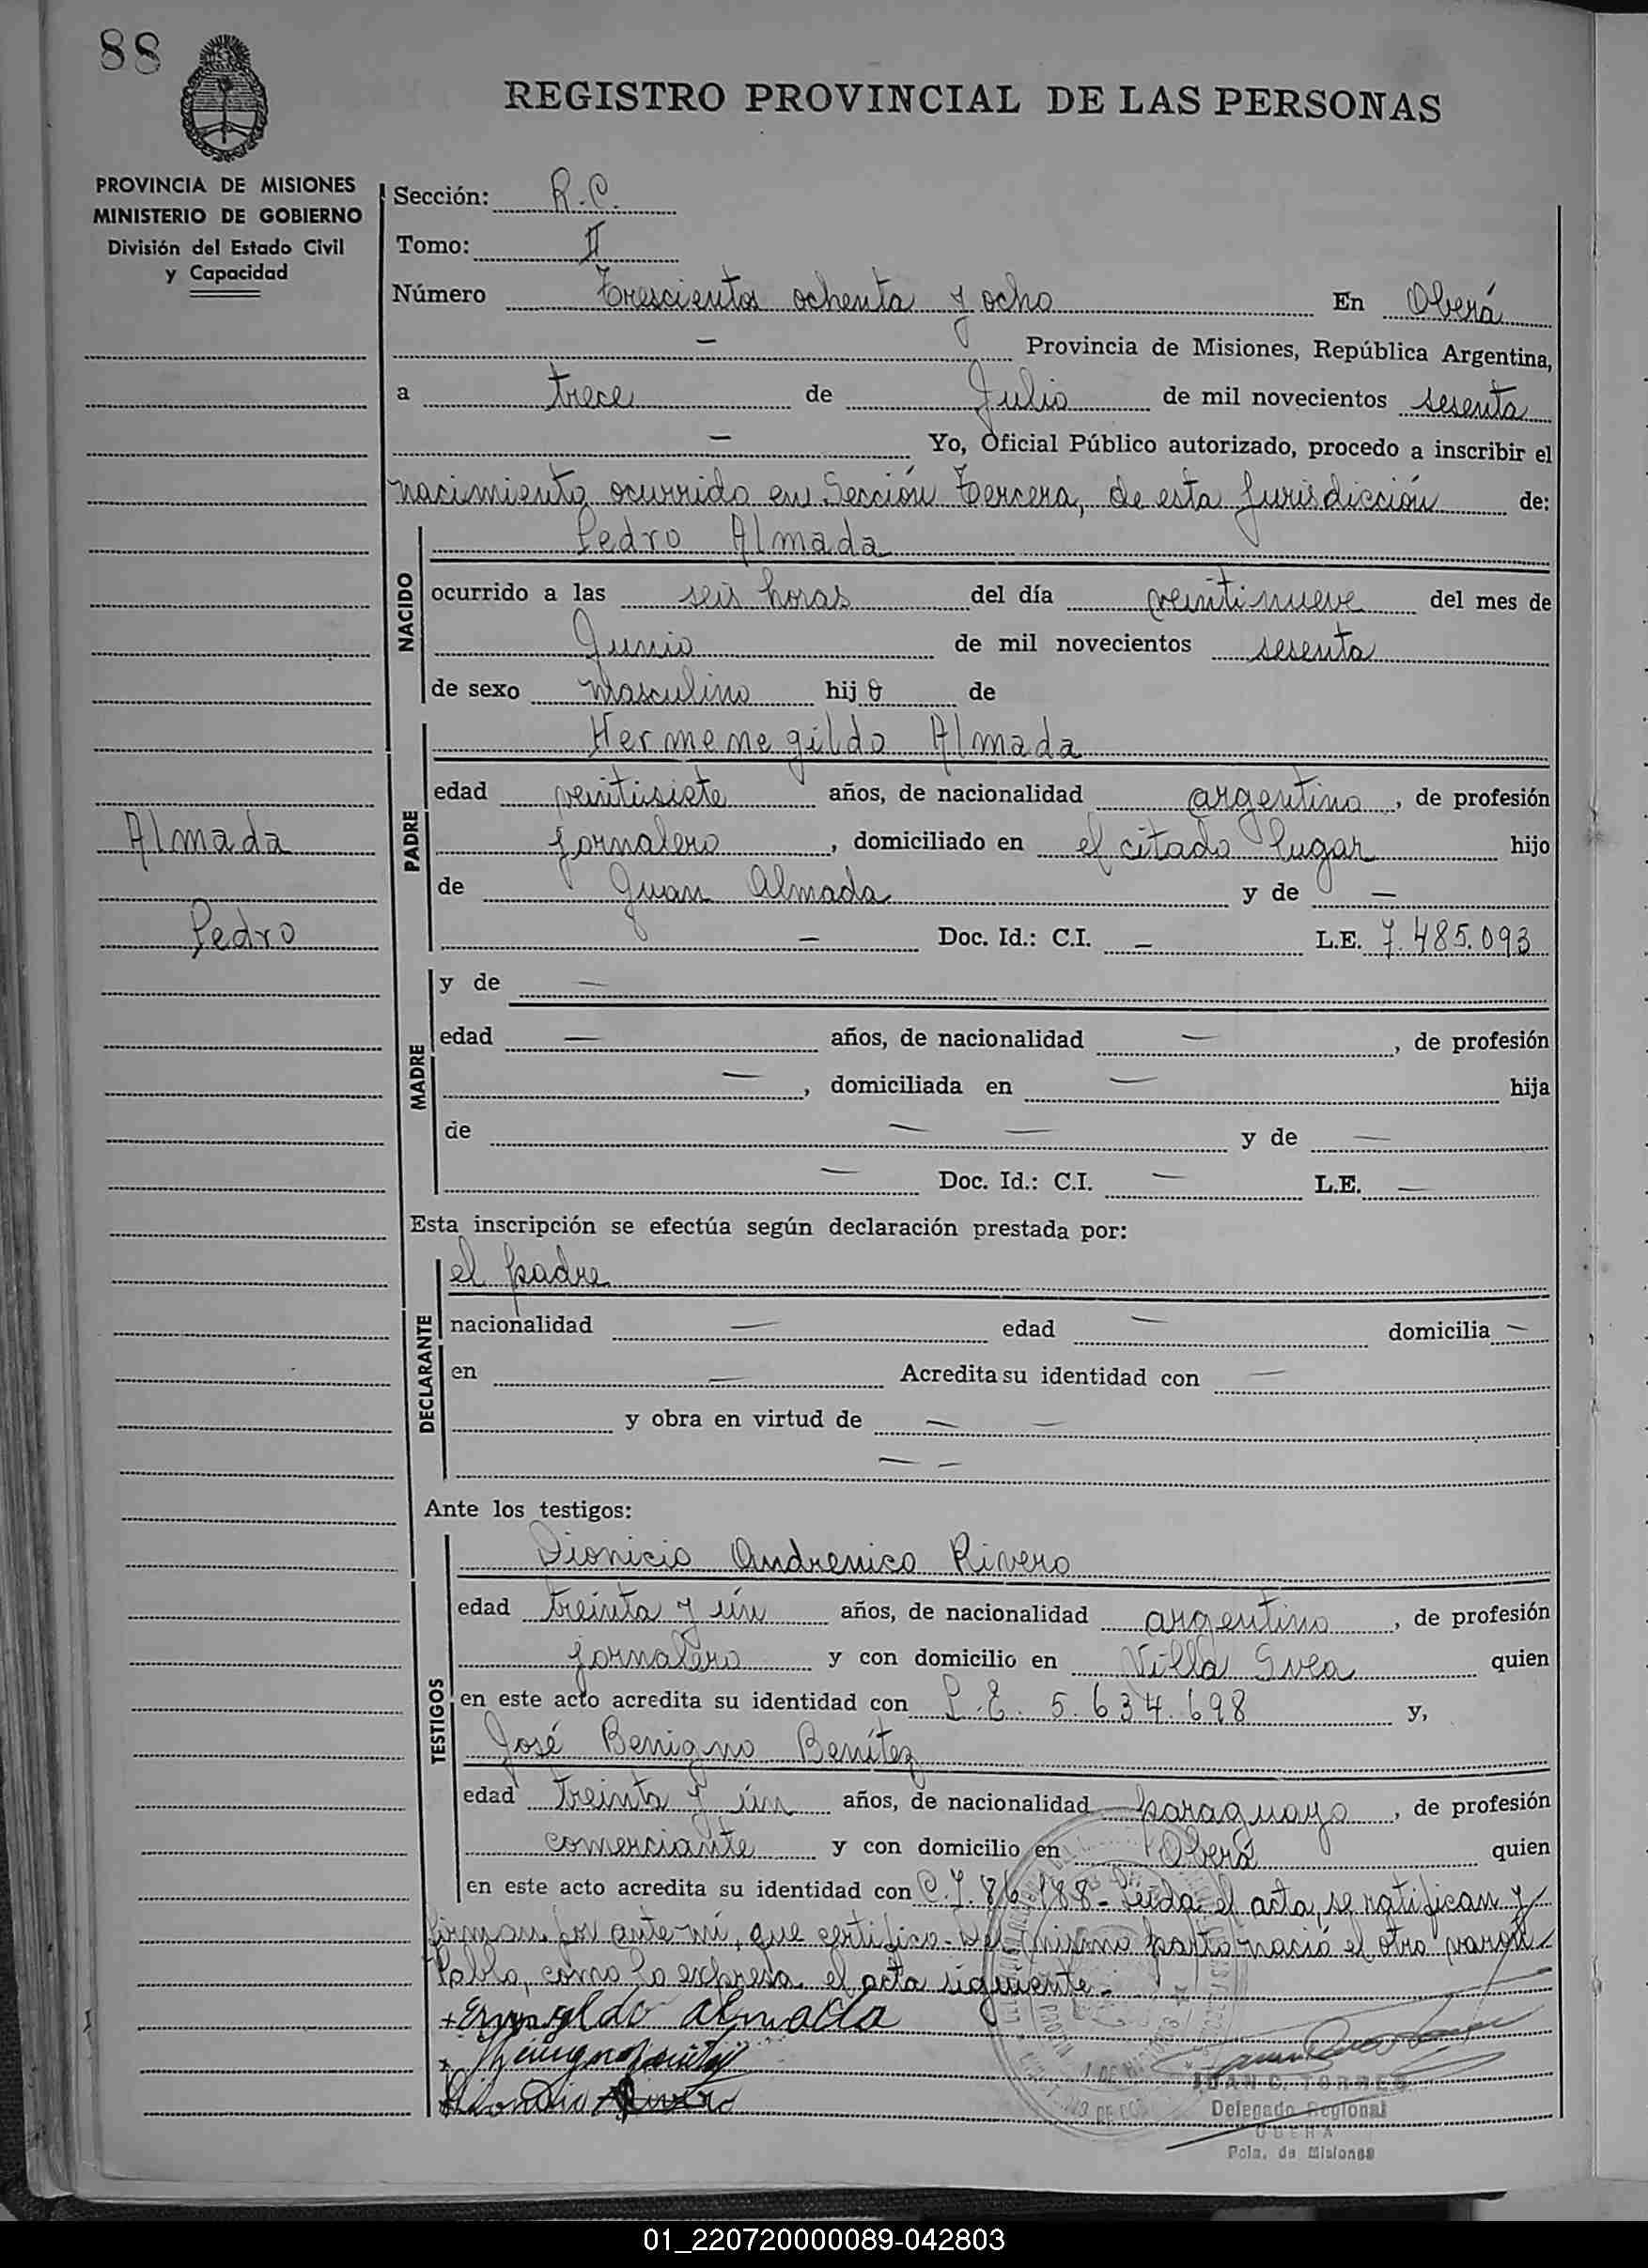 88
REGISTRO PROVINCIAL DE LAS PERSONAS
PROVINCIA DE MISIONES
MINISTERIO DE GOBIERNO
División del Estado Civil
y Capacidad
Sección: R.C.
Tomo: II
Número Trescientos ochenta y ocho En Oberá
— Provincia de Misiones, República Argentina,
a trece de Julio de mil novecientos sesenta
— Yo, Oficial Público autorizado, procedo a inscribir el
nacimiento ocurrido en Sección Tercera, de esta Jurisdicción de:
NACIDO
Pedro Almada
ocurrido a las seis horas del día veintinueve del mes de
Junio de mil novecientos sesenta
de sexo masculino hijo de
PADRE
Hermenegildo Almada
edad veintisiete años, de nacionalidad argentino, de profesión
jornalero, domiciliado en el citado lugar hijo
de Juan Almada y de —
— Doc. Id.: C.I. — L.E. 7.485.093
Almada
Pedro
MADRE
y de —
edad — años, de nacionalidad —, de profesión
—, domiciliada en — hija
de — — y de —
— Doc. Id.: C.I. — L.E. —
Esta inscripción se efectúa según declaración prestada por:
DECLARANTE
el padre
nacionalidad — edad — domicilia —
en — Acredita su identidad con —
y obra en virtud de — —
— —
Ante los testigos:
TESTIGOS
Dionicio Andrenico Rivero
edad treinta y ún años, de nacionalidad argentino, de profesión
jornalero y con domicilio en Villa Svea quien
en este acto acredita su identidad con L.E. 5.634.698 y,
José Benigno Benítez
edad treinta y ún años, de nacionalidad paraguayo, de profesión
comerciante y con domicilio en Oberá quien
en este acto acredita su identidad con C.I. 86.188- Leída el acta, se ratifican y
firman por ante mí, que certifico- Del mismo parto nació el otro varón
Pablo, como lo expresa el acta siguiente-
almada
Rivero
JUAN C. TORRES
Delegado Regional
OBERA
Pcia. de Misiones
01_220720000089-042803